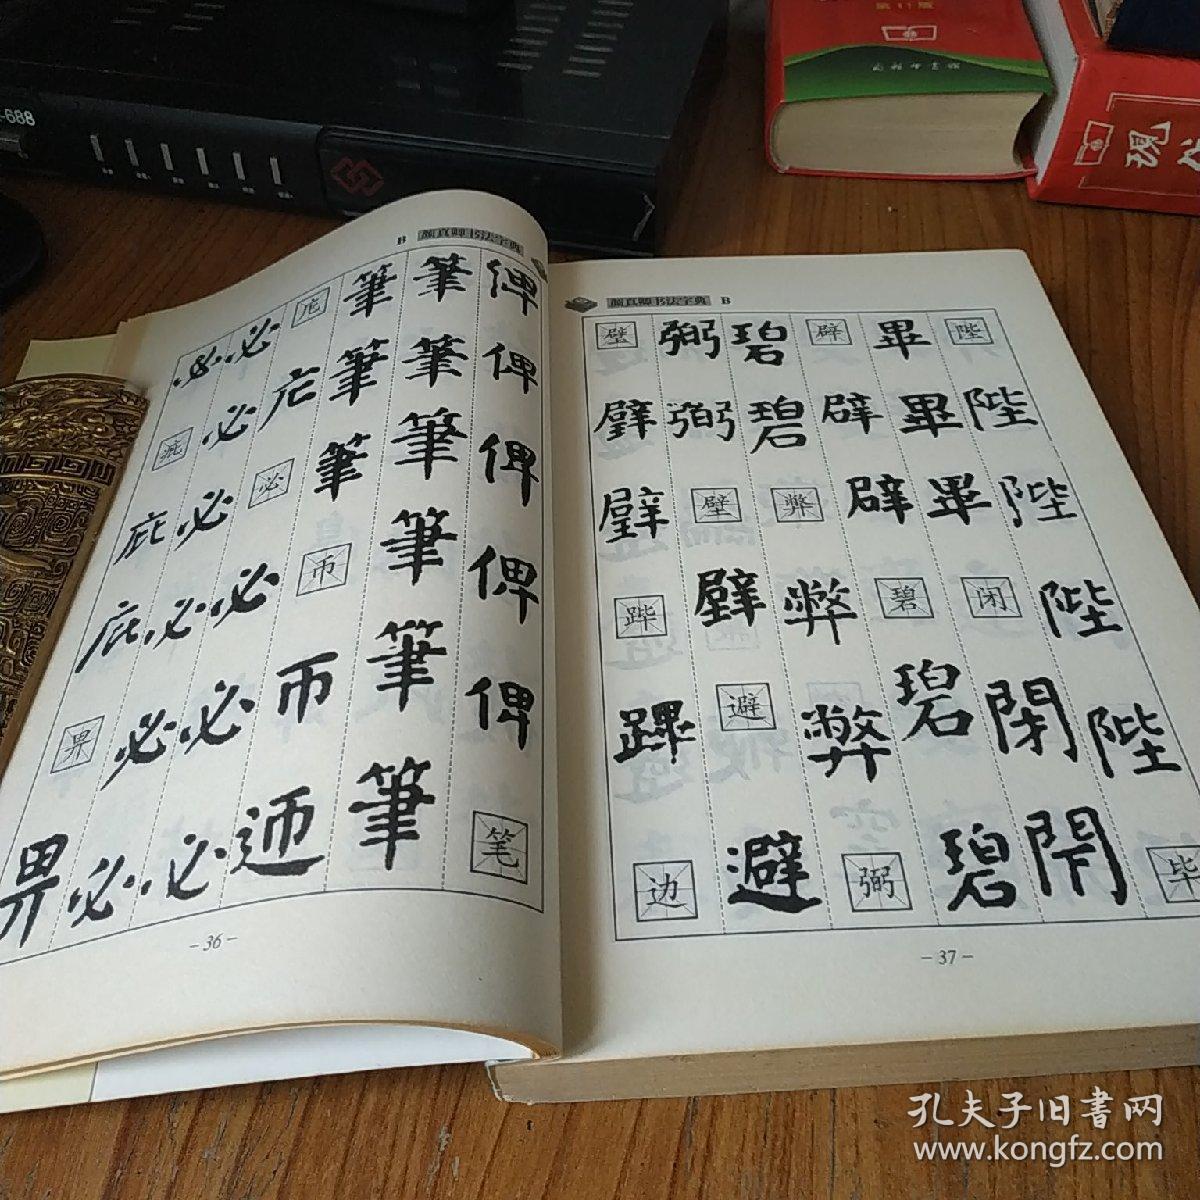 -688
第11版
商务印书馆
现
B 颜真卿书法字典
俾 俾 俾 俾 俾 笔
筆 筆 筆 筆 筆 筆
筆 筆 筆 币 币 迊
庀 庀 必 必 必 必
必 必 必 必 必
必 庇 庇 庇 畀 畀
颜真卿书法字典 B
陛 陛 陛 陛 陛 毕
畢 畢 畢 闭 閉 閉
辟 辟 辟 碧 碧 碧
碧 碧 弊 弊 弊 弼
弼 弼 壁 壁 避 避
璧 璧 璧 跸 蹕 边
-36-
-37-
孔夫子旧書网
www.kongfz.com